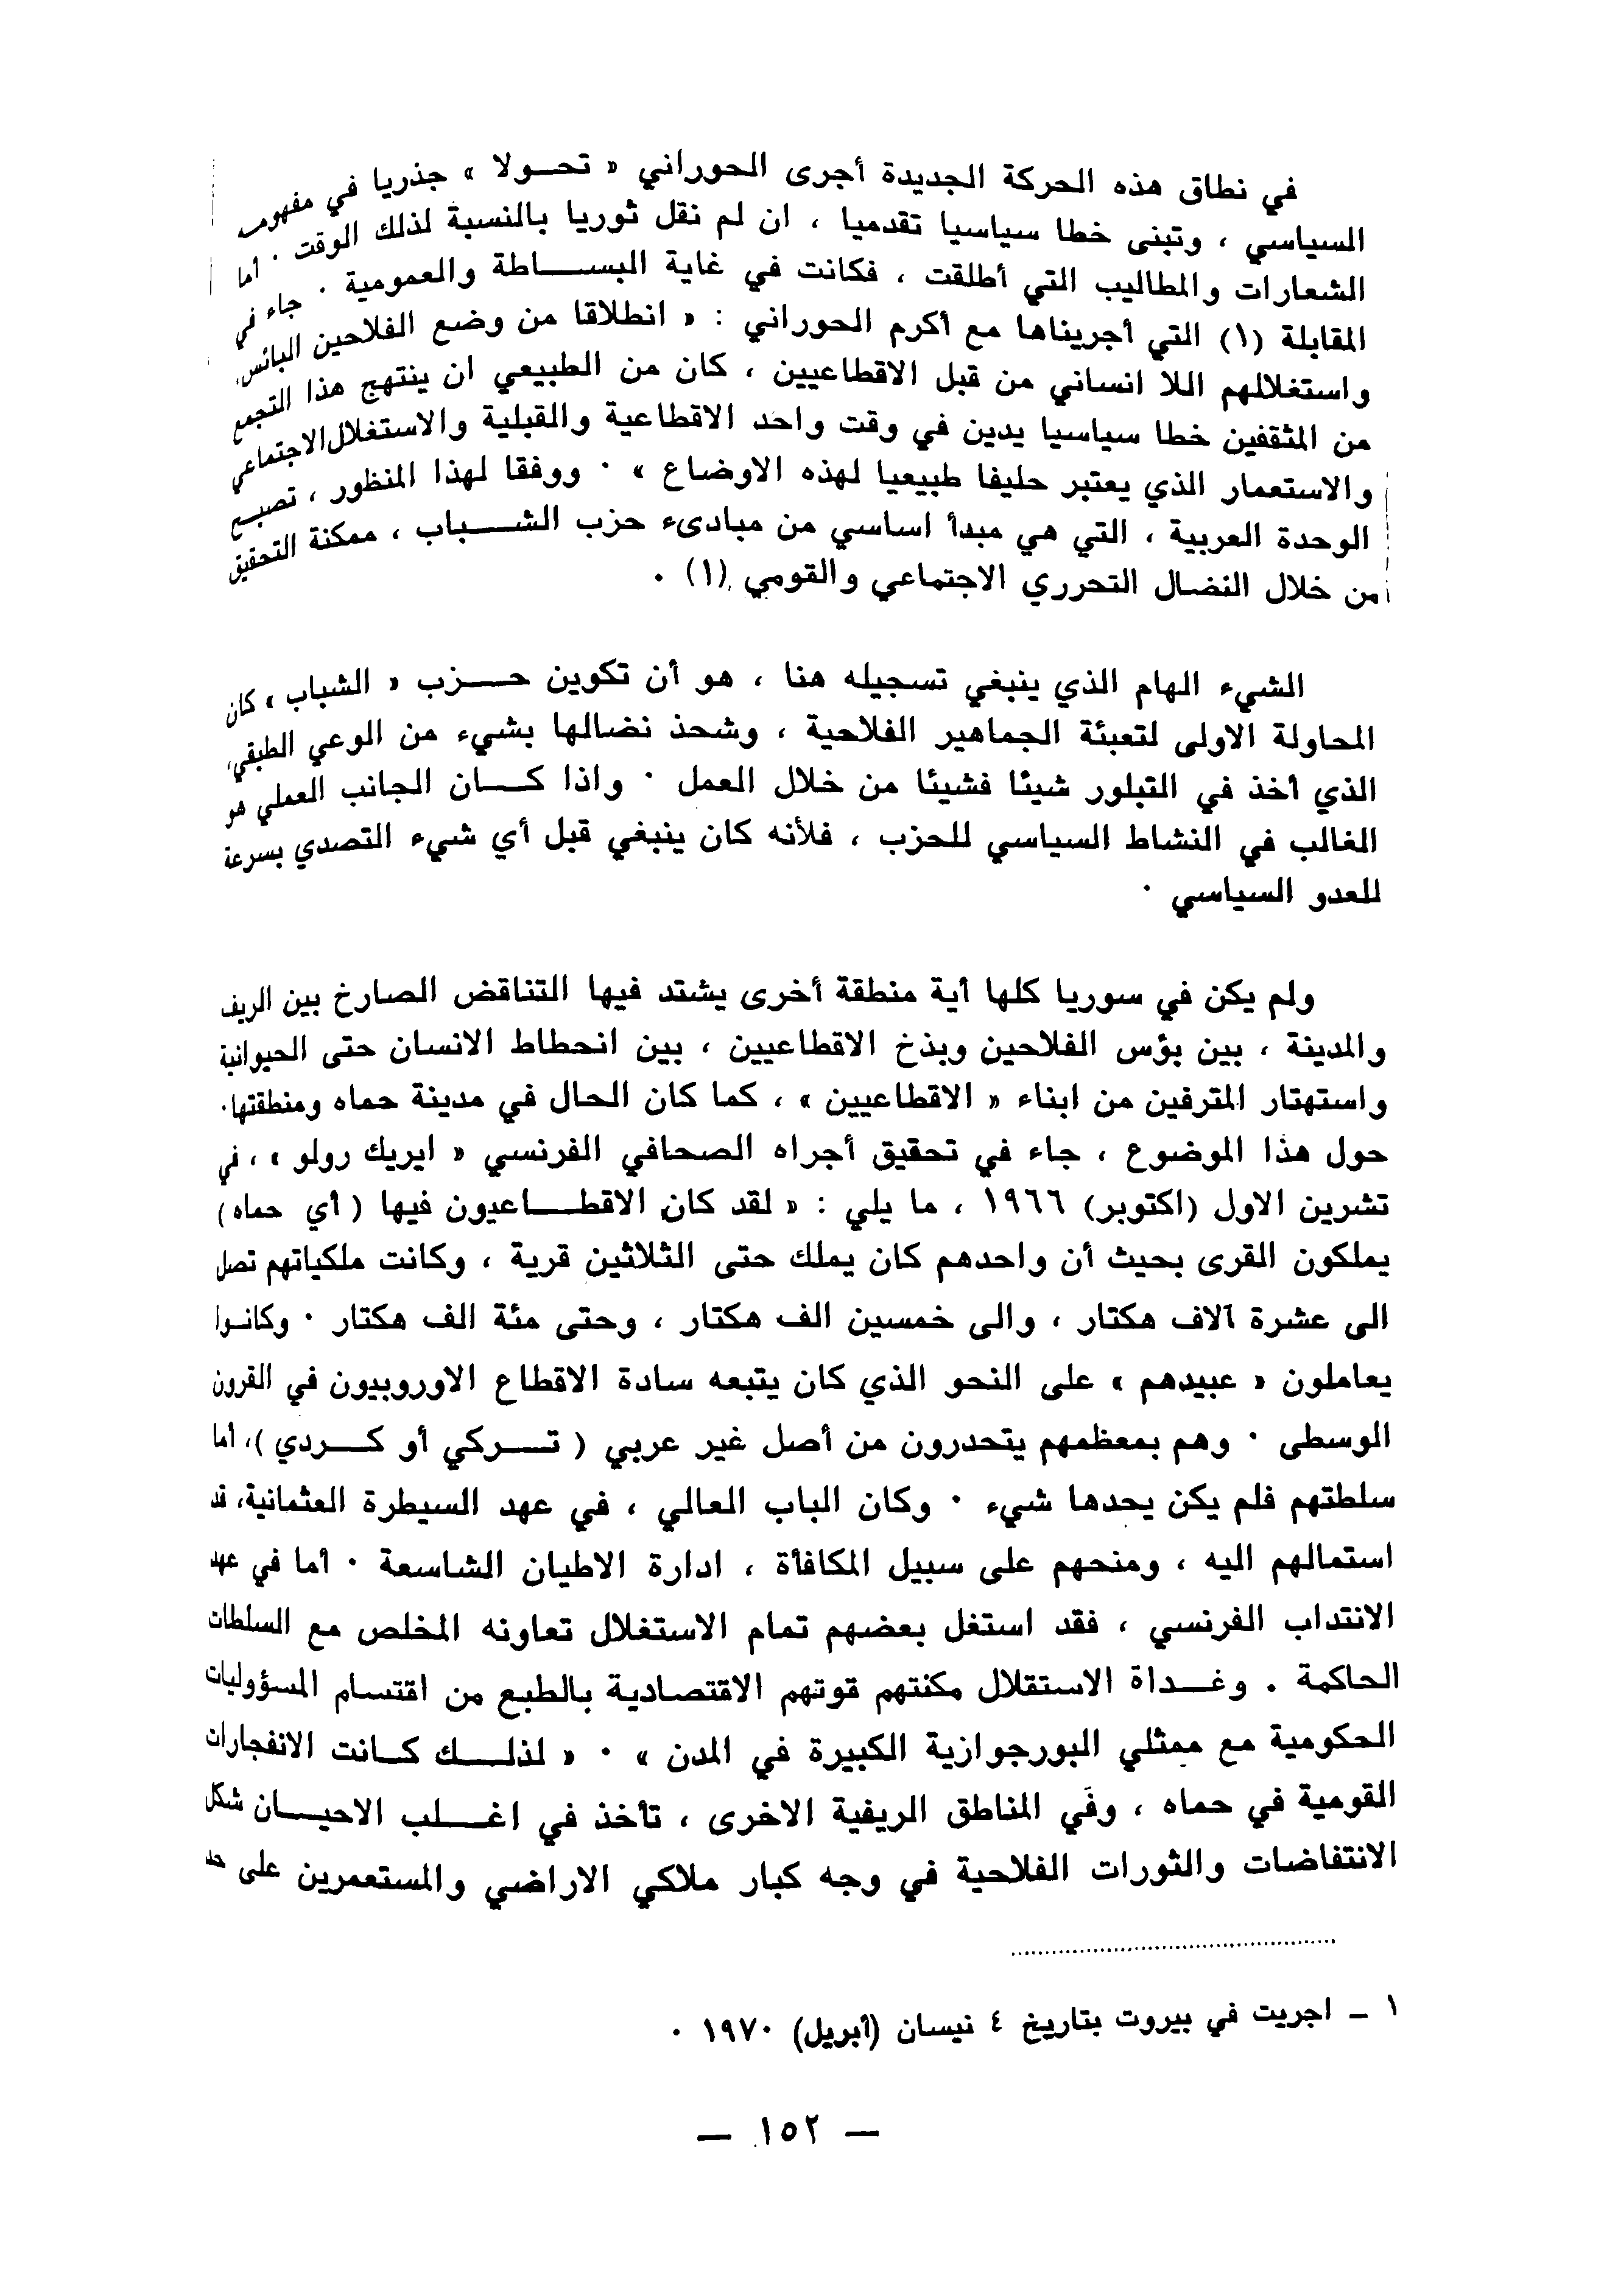 في نطاق هذه الحركة الجديدة أجرى الحوراني « تحـولا » جذريا في مفهومه
السياسي ، وتبنى خطا سياسيا تقدميا ، ان لم نقل ثوريا بالنسبة لذلك الوقت . أما
الشعارات والمطاليب التي أطلقت ، فكانت في غاية البســـاطة والعمومية . جاء في
المقابلة (١) التي أجريناها مع أكرم الحوراني : « انطلاقا من وضع الفلاحين البائس،
واستغلالهم اللا انساني من قبل الاقطاعيين ، كان من الطبيعي ان ينتهج هذا التجمع
من المثقفين خطا سياسيا يدين في وقت واحد الاقطاعية والقبلية والاستغلال الاجتماعي
والاستعمار الذي يعتبر حليفا طبيعيا لهذه الاوضاع » . ووفقا لهذا المنظور ، تصبـح
الوحدة العربية ، التي هي مبدأ اساسي من مبادىء حزب الشـــباب ، ممكنة التحقيق
من خلال النضال التحرري الاجتماعي والقومي (١) .
الشيء الهام الذي ينبغي تسجيله هنا ، هو أن تكوين حـــزب « الشباب » كان
المحاولة الاولى لتعبئة الجماهير الفلاحية ، وشحذ نضالها بشيء من الوعي الطبقي،
الذي أخذ في التبلور شيئا فشيئا من خلال العمل . واذا كـــان الجانب العملي هو
الغالب في النشاط السياسي للحزب ، فلأنه كان ينبغي قبل أي شيء التصدي بسرعة
للعدو السياسي .
ولم يكن في سوريا كلها أية منطقة أخرى يشتد فيها التناقض الصارخ بين الريف
والمدينة ، بين بؤس الفلاحين وبذخ الاقطاعيين ، بين انحطاط الانسان حتى الحيوانية
واستهتار المترفين من ابناء « الاقطاعيين » ، كما كان الحال في مدينة حماه ومنطقتها.
حول هذا الموضوع ، جاء في تحقيق أجراه الصحافي الفرنسي « ايريك رولو » ، في
تشرين الاول (اكتوبر) ١٩٦٦ ، ما يلي : « لقد كان الاقطـــاعيون فيها ( أي حماه )
يملكون القرى بحيث أن واحدهم كان يملك حتى الثلاثين قرية ، وكانت ملكياتهم تصل
الى عشرة آلاف هكتار ، والى خمسين الف هكتار ، وحتى مئة الف هكتار . وكانـوا
يعاملون « عبيدهم » على النحو الذي كان يتبعه سادة الاقطاع الاوروبيون في القرون
الوسطى . وهم بمعظمهم يتحدرون من أصل غير عربي ( تـــركي أو كـــردي )، أما
سلطتهم فلم يكن يحدها شيء . وكان الباب العالي ، في عهد السيطرة العثمانية، قد
استمالهم اليه ، ومنحهم على سبيل المكافأة ، ادارة الاطيان الشاسعة . أما في عهد
الانتداب الفرنسي ، فقد استغل بعضهم تمام الاستغلال تعاونه المخلص مع السلطات
الحاكمة . وغـــداة الاستقلال مكنتهم قوتهم الاقتصادية بالطبع من اقتسام المسؤوليات
الحكومية مع ممثلي البورجوازية الكبيرة في المدن » . « لذلـــك كـانت الانفجارات
القومية في حماه ، وفي المناطق الريفية الاخرى ، تأخذ في اغـــلب الاحيـــان شكل
الانتفاضات والثورات الفلاحية في وجه كبار ملاكي الاراضي والمستعمرين على حد
١ ـ اجريت في بيروت بتاريخ ٤ نيسان (أبريل) ١٩٧٠ .
— ١٥٢ —